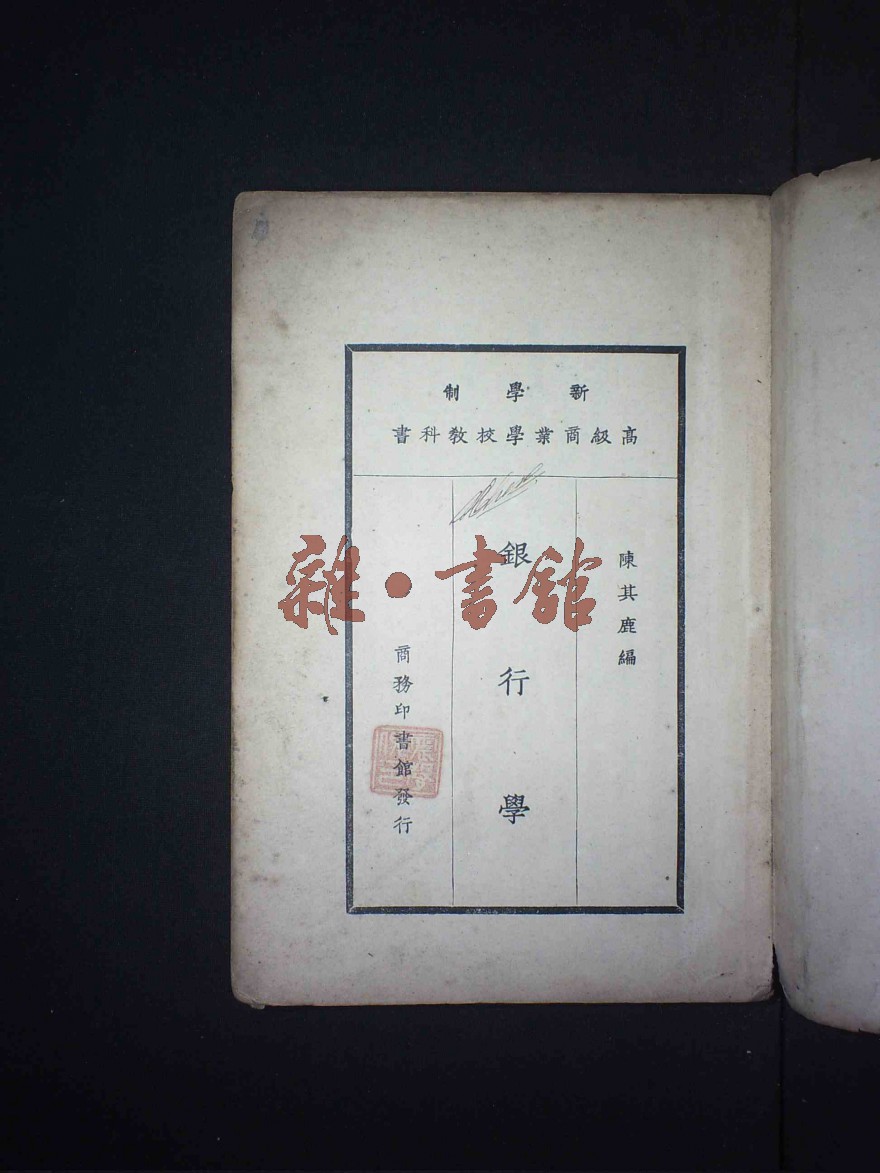 新學制
高級商業學校教科書
陳其鹿編
銀行學
商務印書館發行
雜·書館